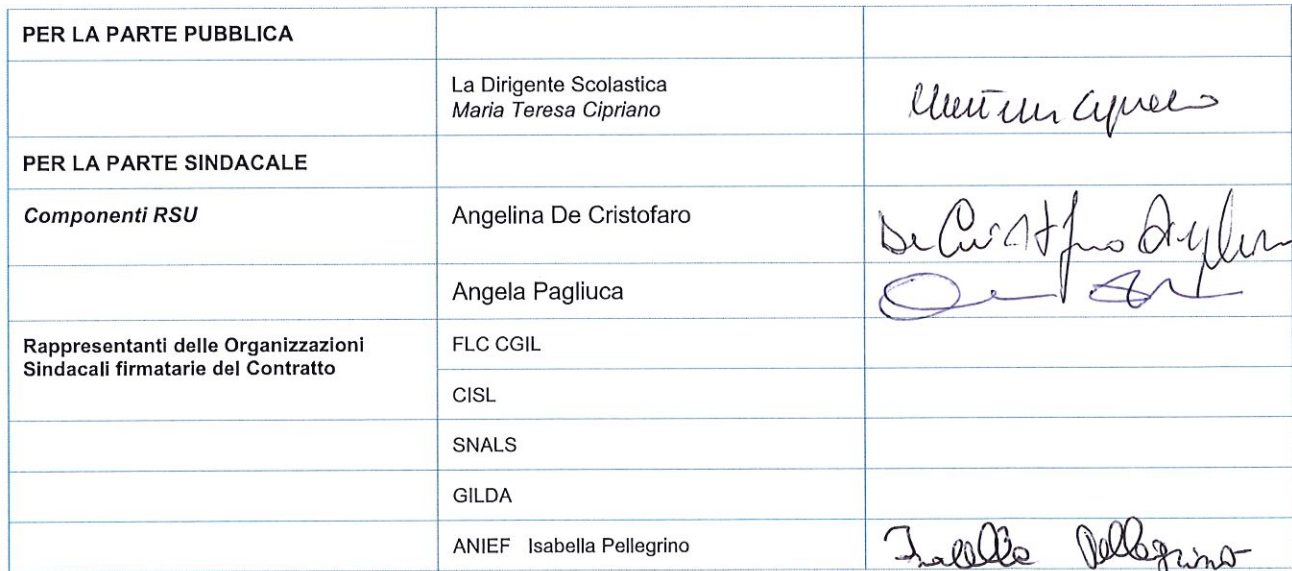 PER LA PARTE PUBBLICA
La Dirigente Scolastica
Maria Teresa Cipriano
PER LA PARTE SINDACALE
Componenti RSU
Angelina De Cristofaro
De Cristofaro
Angela Pagliuca
Rappresentanti delle Organizzazioni
Sindacali firmatarie del Contratto
FLC CGIL
CISL
SNALS
GILDA
ANIEF Isabella Pellegrino
Isabella Pellegrino